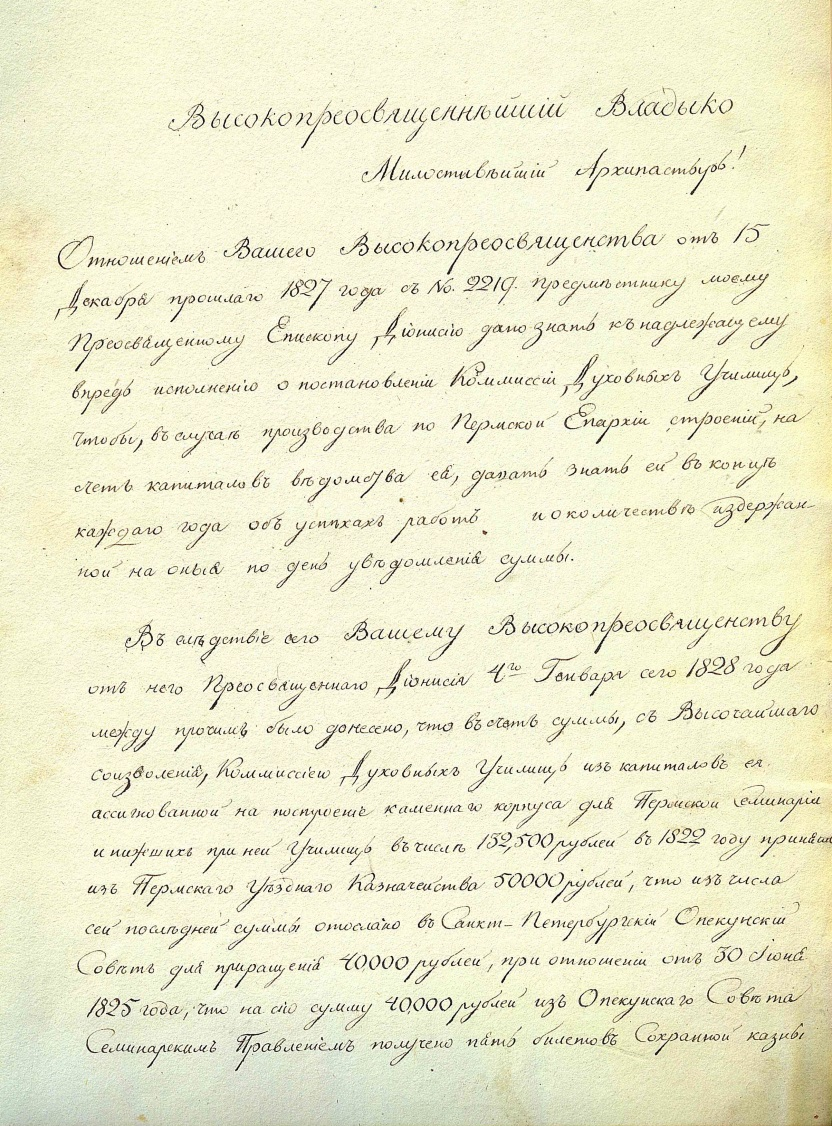 Высокопреосвященнѣйшій Владыко
Милостивѣйшій Архипастырь!
Отношеніемъ Вашего Высокопреосвященства отъ 15
Декабря прошлаго 1827 года съ No. 2219. предмѣстнику моему
Преосвященному Епископу Діонисію дано знать къ надлежащему
впредь исполненію о постановленіи Коммиссіи Духовныхъ Училищъ,
чтобы, въ случаѣ производства по Пермской Епархіи строеній, на
счетъ капиталовъ вѣдомства ея, давать знать ей въ концѣ
каждаго года объ успѣхахъ работъ и о количествѣ издержан-
ной на оныя по день увѣдомленія суммы.
Въ слѣдствіе сего Вашему Высокопреосвященству
отъ него Преосвященнаго Діонисія 4го Генваря сего 1828 года
между прочимъ было донесено, что въ счетъ суммы, съ Высочайшаго
соизволенія, Коммиссіею Духовныхъ Училищъ изъ капиталовъ ея
ассигнованной на построеніе каменнаго корпуса для Пермской Семинаріи
и низшихъ при ней Училищъ въ числѣ 132,500 рублей въ 1822 году принято
изъ Пермскаго Уѣзднаго Казначейства 50000 рублей, что изъ числа
сей послѣдней суммы отослано въ Санкт-Петербургскій Опекунскій
Совѣтъ для приращенія 40,000 рублей, при отношеніи отъ 30 Іюня
1825 года, что на сію сумму 40,000 рублей изъ Опекунскаго Совѣта
Семинарскимъ Правленіемъ получено пять билетовъ Сохранной казны